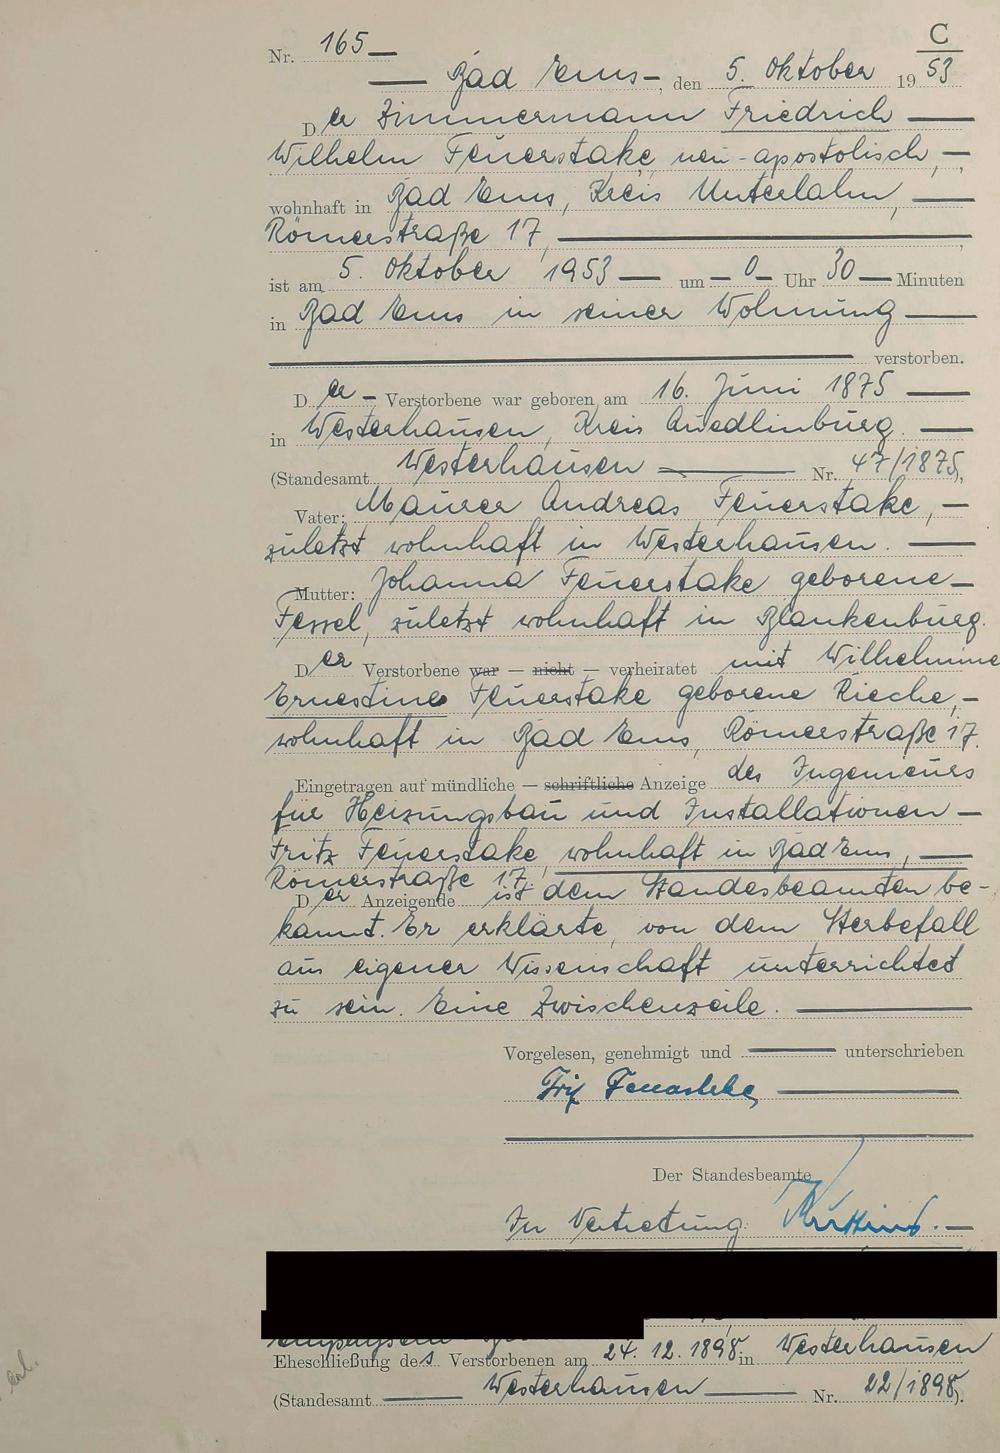 C
Nr. 165
Bad Ems, den 5. Oktober 1953
Der Zimmermann Friedrich
Wilhelm Feuerstake, neu-apostolisch,
wohnhaft in Bad Ems, Kreis Unterlahn,
Römerstraße 17,
ist am 5. Oktober 1953 um 0 Uhr 30 Minuten
in Bad Ems in seiner Wohnung
verstorben.
Der Verstorbene war geboren am 16. Juni 1875
in Westerhausen, Kreis Quedlinburg.
(Standesamt Westerhausen Nr. 47/1875),
Vater: Maurer Andreas Feuerstake,
zuletzt wohnhaft in Westerhausen.
Mutter: Johanna Feuerstake geborene
Fessel, zuletzt wohnhaft in Blankenburg.
Der Verstorbene war — nicht — verheiratet mit Wilhelmine
Ernestine Feuerstake geborene Rieche,
wohnhaft in Bad Ems, Römerstraße 17.
Eingetragen auf mündliche — schriftliche Anzeige des Ingenieurs
für Heizungsbau und Installationen
Fritz Feuerstake, wohnhaft in Bad Ems,
Römerstraße 17.
Der Anzeigende ist dem Standesbeamten be-
kannt. Er erklärte, von dem Sterbefall
aus eigener Wissenschaft unterrichtet
zu sein. Eine Zwischenzeile.
Vorgelesen, genehmigt und unterschrieben
Fritz Feuerstake
Der Standesbeamte
In Vertretung:
Eheschließung des Verstorbenen am 24. 12. 1898 in Westerhausen
(Standesamt Westerhausen Nr. 22/1898).